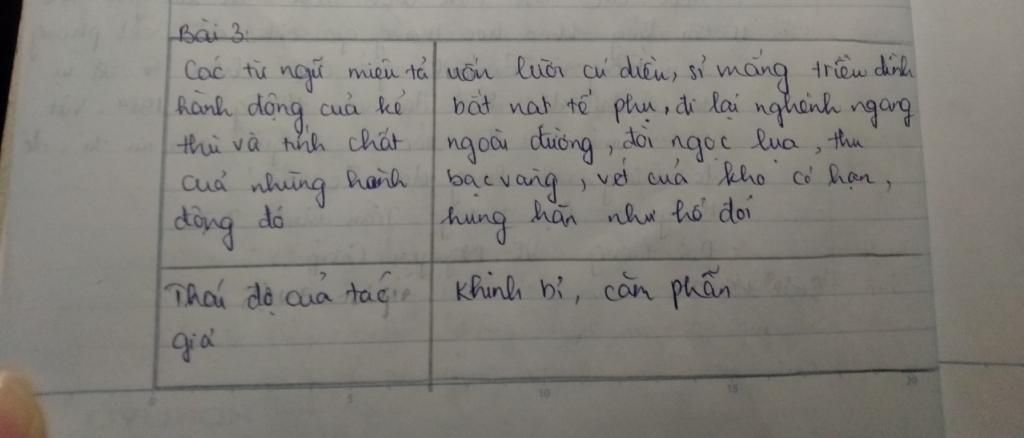 Bài 3:
Các từ ngữ miêu tả
hành động của kẻ
thù và tính chất
của những hành
động đó
uốn lưỡi cú diều, sỉ mắng triều đình
bắt nạt tể phụ, đi lại nghênh ngang
ngoài đường, đòi ngọc lụa, thu
bạc vàng, vét của kho có hạn,
hung hãn như hổ đói
Thái độ của tác
giả
Khinh bỉ, căm phẫn
0 5 10 15 20